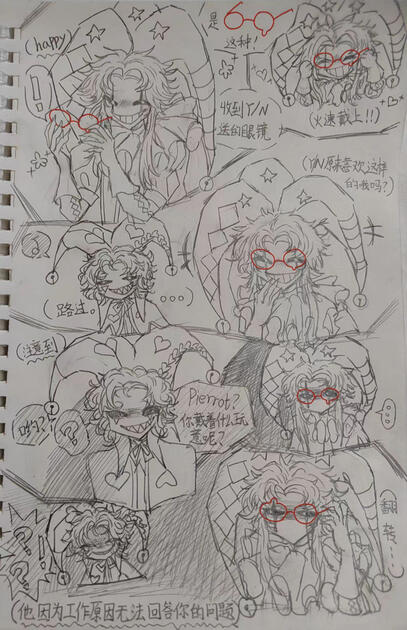 (happy)
!
是
这种!
收到Y/N
送的眼镜
(火速戴上!!)
(Y/N原来喜欢这样
的我吗?)
?
(路过。
...)
注意到
哟?
?
Pierrot?
你戴着什么玩
意呢?
...
翻
转...
? ? ?
(他因为工作原因无法回答你的问题)